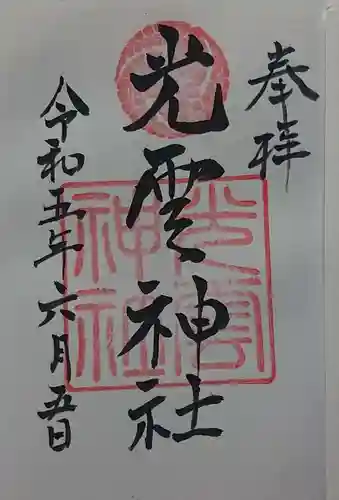 奉拝
光雲神社
令和五年六月五日
光雲神社